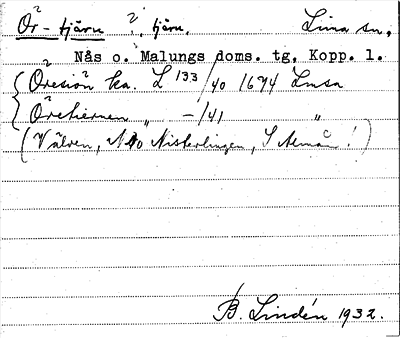 Ör-tjärn ?, tjärn. Lima sn,
Nås o. Malungs doms. tg, Kopp. l.
Öresiön ka. L 133/40 1674 Lmsa
Öretiernen " -/41 "
(Välven, NO Nisterlingen, S
B. Lindén 1932.